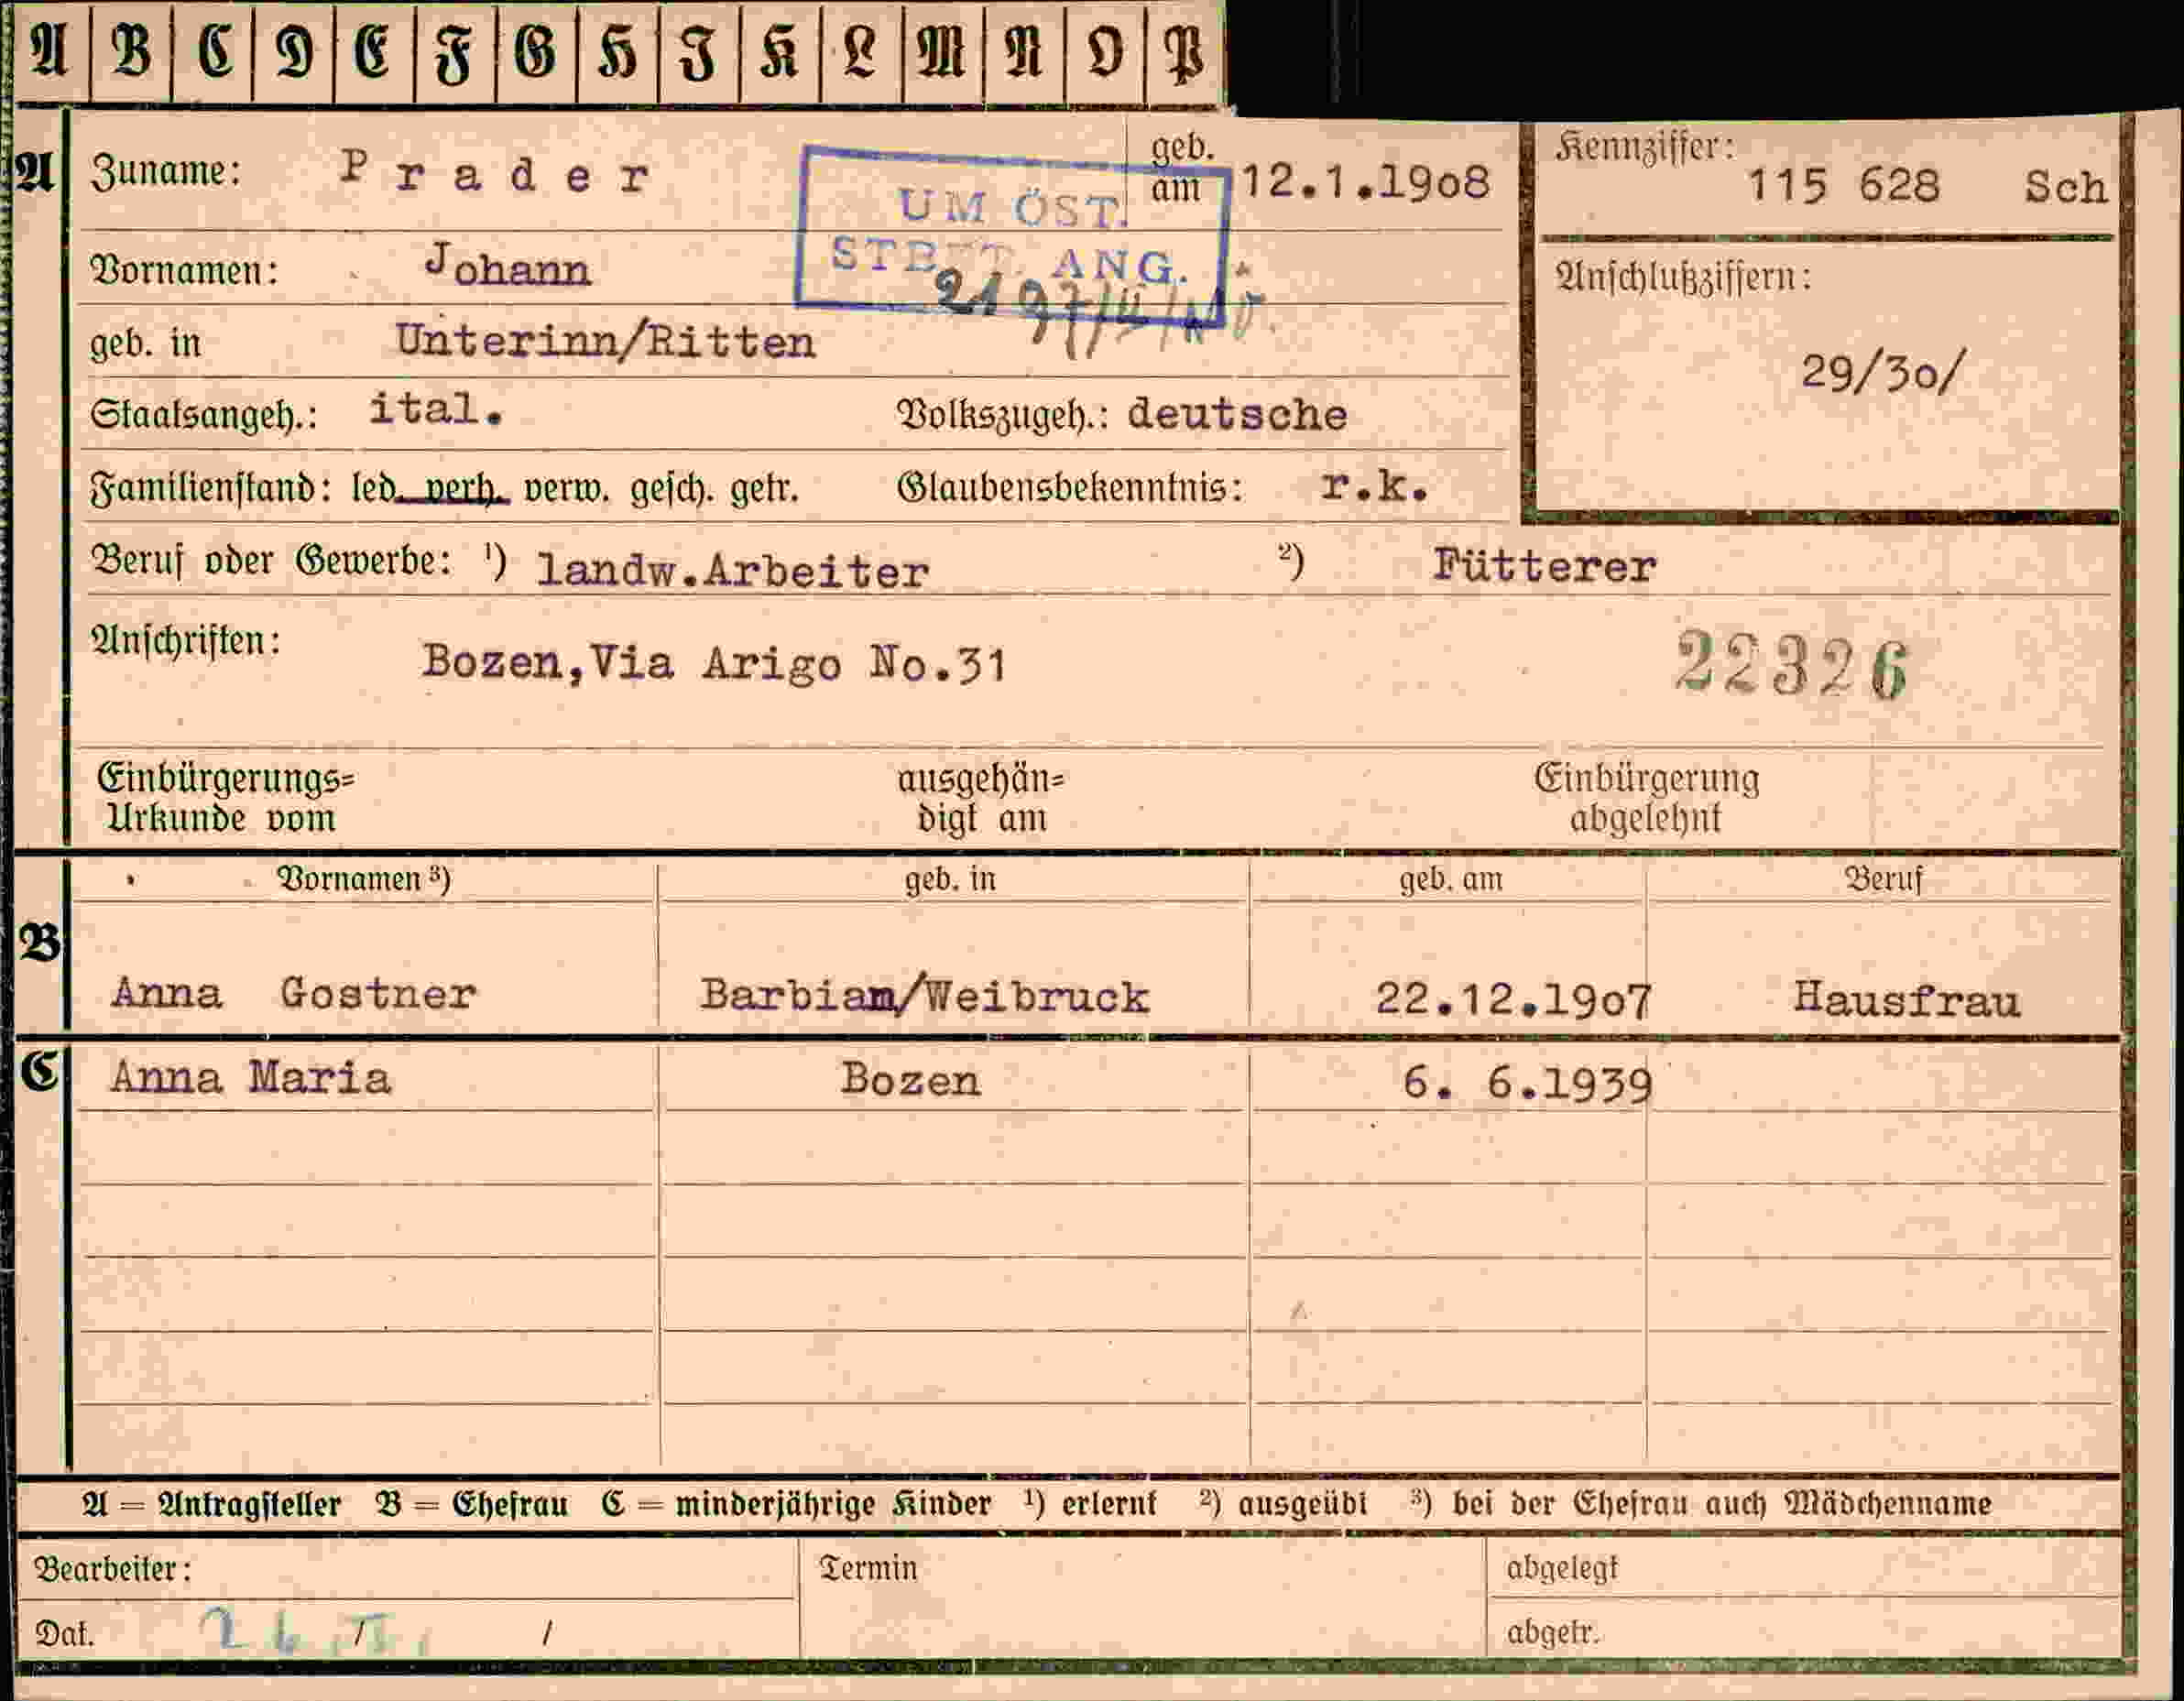 A B C D E F G H I K L M N O P
A Zuname: Prader geb. am 12.1.19o8 Kennziffer: 115 628 Sch
UM ÖST.
Vornamen: Johann ANG. Anschlußziffern:
geb. in Unterinn/Ritten
29/3o/
Staatsangeh.: ital. Volkszugeh.: deutsche
Familienstand: led. verh. verw. gesch. getr. Glaubensbekenntnis: r.k.
Beruf oder Gewerbe: ¹) landw.Arbeiter ²) Fütterer
Anschriften: Bozen,Via Arigo No.31 22326
Einbürgerungs= ausgehän= Einbürgerung
Urkunde vom digt am abgelehnt
Vornamen ³) geb. in geb. am Beruf
B Anna Gostner Barbian/Weibruck 22.12.19o7 Hausfrau
C Anna Maria Bozen 6. 6.1939
A = Antragsteller B = Ehefrau C = minderjährige Kinder ¹) erlernt ²) ausgeübt ³) bei der Ehefrau auch Mädchenname
Bearbeiter: Termin abgelegt
Dat. / / abgetr.